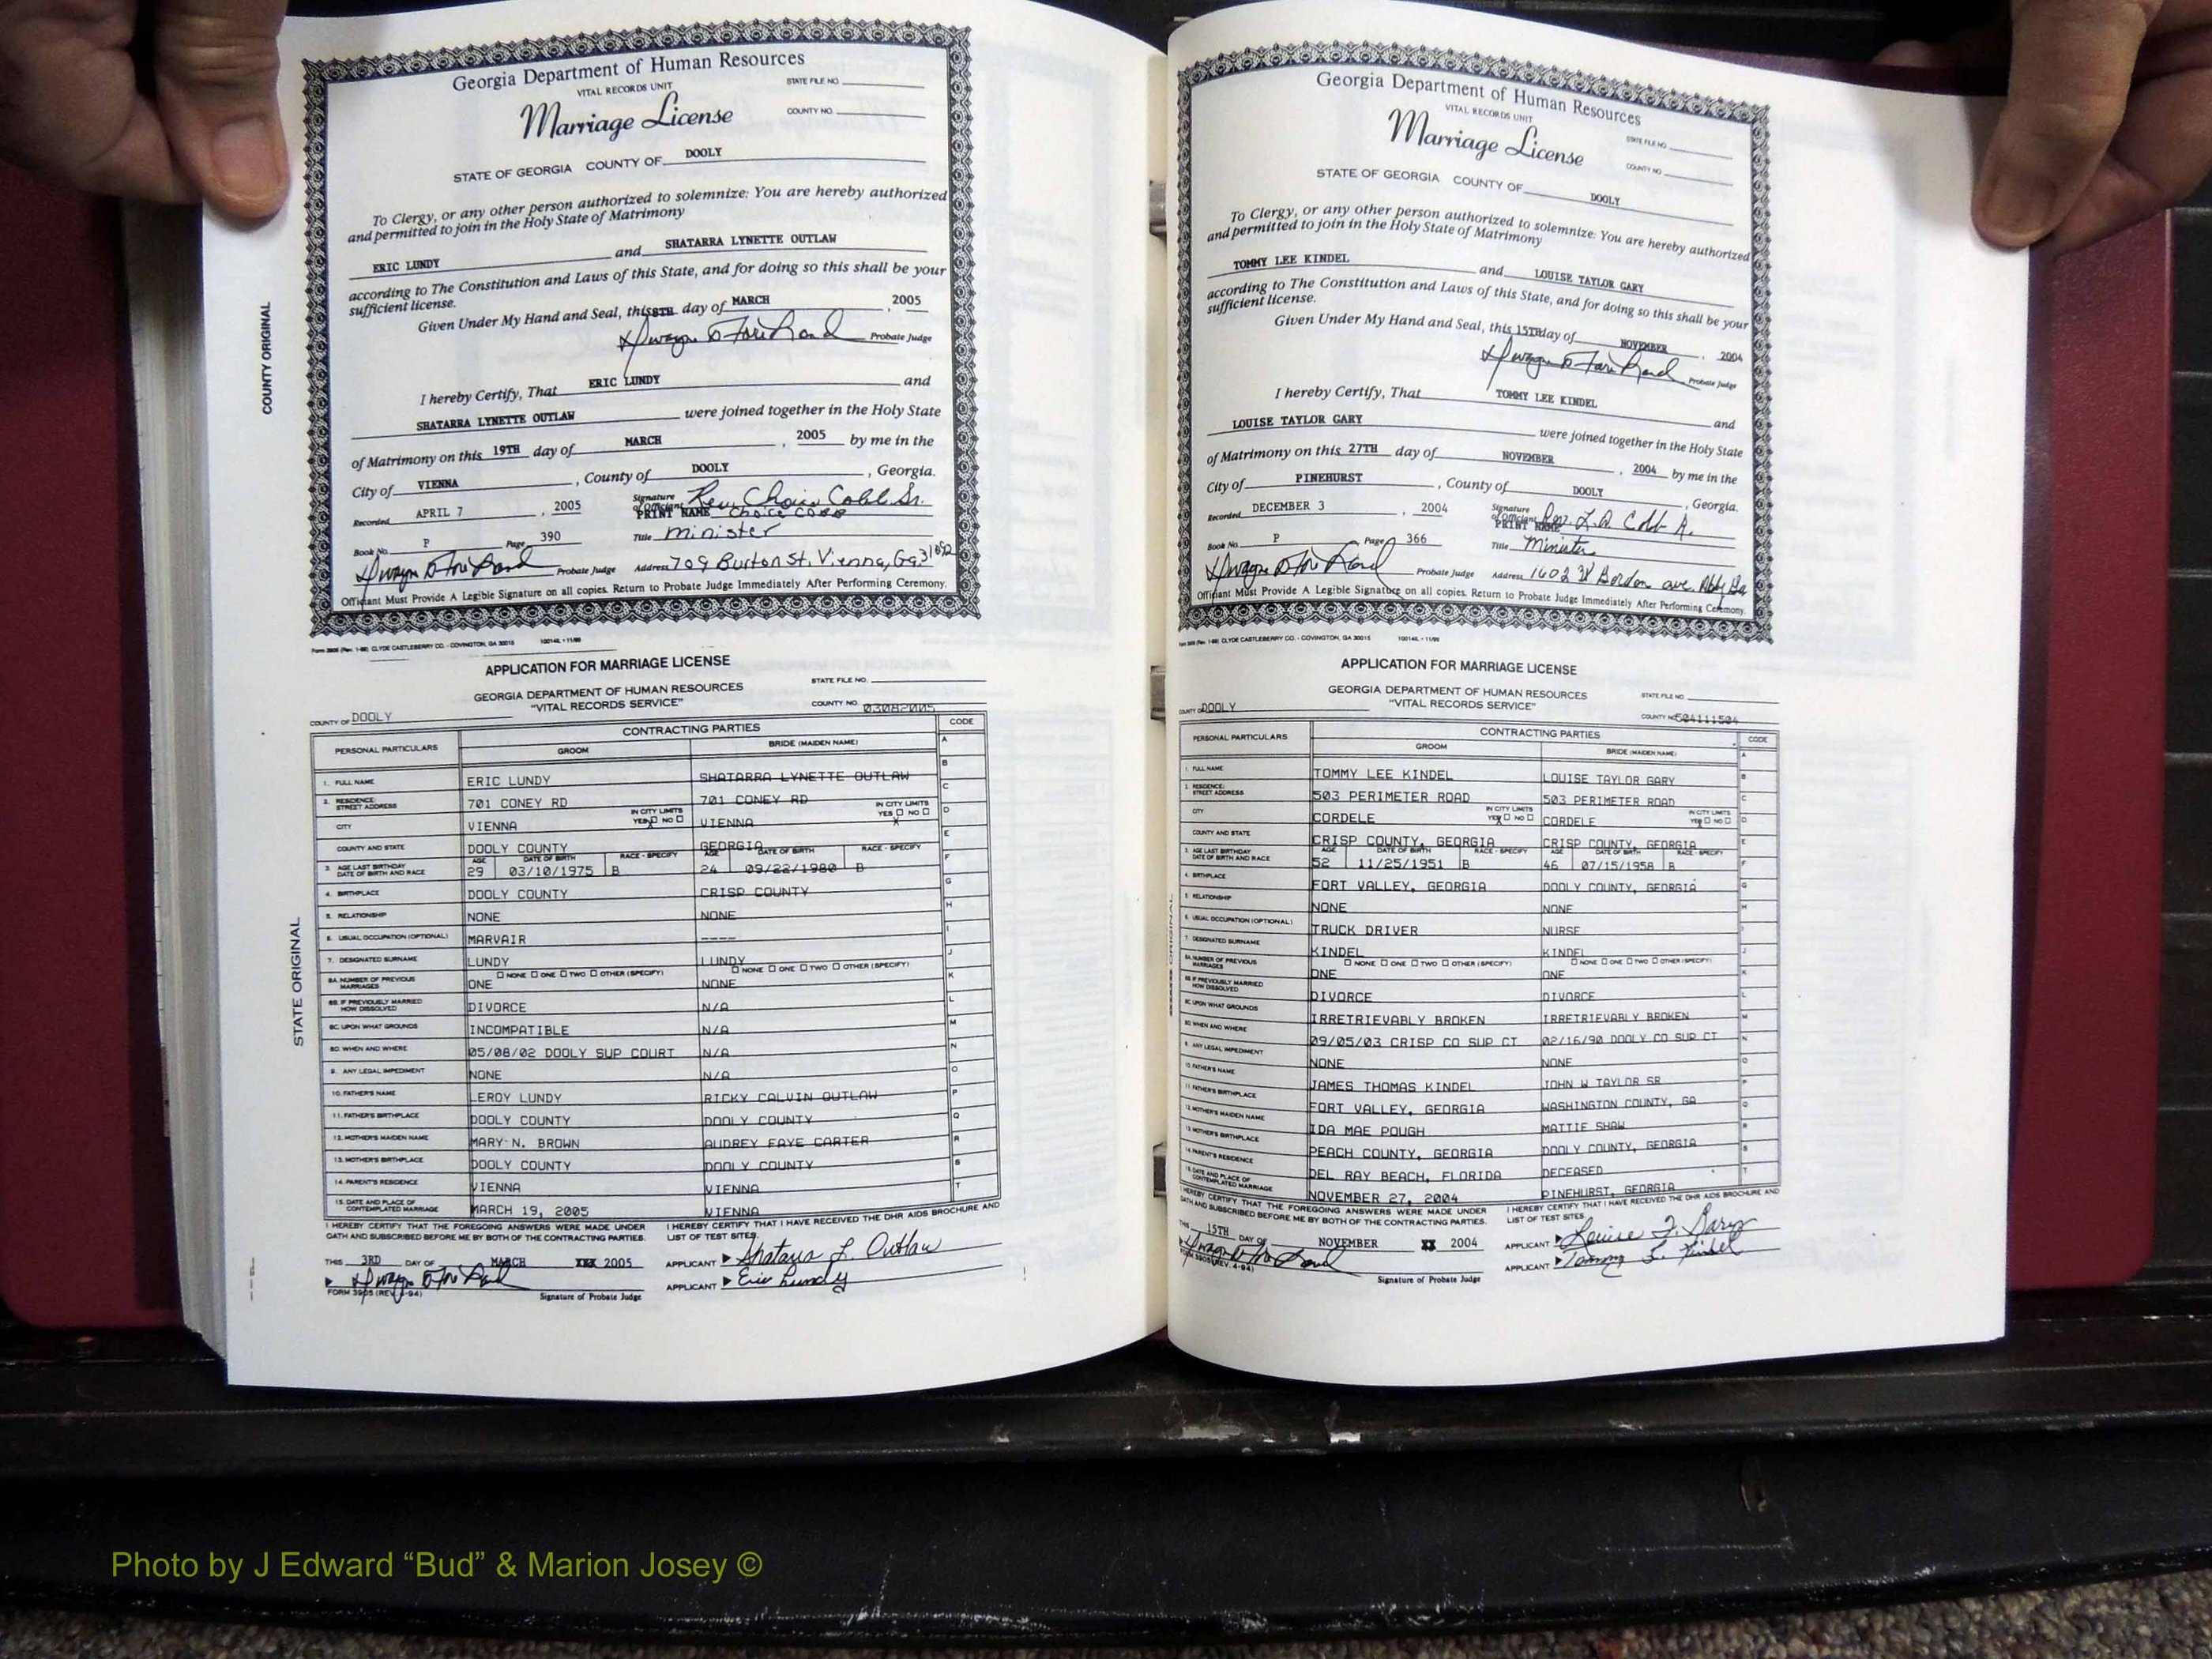 COUNTY ORIGINAL
Georgia Department of Human Resources
VITAL RECORDS UNIT
STATE FILE NO.
Marriage License
COUNTY NO.
STATE OF GEORGIA COUNTY OF DOOLY
To Clergy, or any other person authorized to solemnize: You are hereby authorized
and permitted to join in the Holy State of Matrimony
ERIC LUNDY and SHATARRA LYNETTE OUTLAW
according to The Constitution and Laws of this State, and for doing so this shall be your
sufficient license.
Given Under My Hand and Seal, this 8TH day of MARCH , 2005
Probate Judge
I hereby Certify, That ERIC LUNDY and
SHATARRA LYNETTE OUTLAW were joined together in the Holy State
of Matrimony on this 19TH day of MARCH , 2005 by me in the
City of VIENNA , County of DOOLY , Georgia.
Recorded APRIL 7 , 2005 Signature of Officiant Rev. Choice Cobb Sr.
PRINT NAME Choice Cobb
Book No. P Page 390 Title minister
Probate Judge Address 709 Burton St. Vienna, Ga. 31092
Officiant Must Provide A Legible Signature on all copies. Return to Probate Judge Immediately After Performing Ceremony.
CLYDE CASTLEBERRY CO. - COVINGTON, GA 30015
STATE ORIGINAL
APPLICATION FOR MARRIAGE LICENSE
GEORGIA DEPARTMENT OF HUMAN RESOURCES
"VITAL RECORDS SERVICE"
STATE FILE NO.
COUNTY OF DOOLY COUNTY NO. 03082005
PERSONAL PARTICULARS CONTRACTING PARTIES CODE
GROOM BRIDE (MAIDEN NAME)
1. FULL NAME ERIC LUNDY SHATARRA LYNETTE OUTLAW
2. RESIDENCE: STREET ADDRESS 701 CONEY RD 701 CONEY RD
CITY VIENNA IN CITY LIMITS YES NO VIENNA IN CITY LIMITS YES NO
COUNTY AND STATE DOOLY COUNTY GEORGIA
3. AGE LAST BIRTHDAY DATE OF BIRTH AND RACE AGE 29 DATE OF BIRTH 03/10/1975 RACE - SPECIFY B AGE 24 DATE OF BIRTH 09/22/1980 RACE - SPECIFY B
4. BIRTHPLACE DOOLY COUNTY CRISP COUNTY
5. RELATIONSHIP NONE NONE
6. USUAL OCCUPATION (OPTIONAL) MARVAIR ----
7. DESIGNATED SURNAME LUNDY LUNDY
8A. NUMBER OF PREVIOUS MARRIAGES NONE ONE TWO OTHER (SPECIFY) ONE NONE ONE TWO OTHER (SPECIFY) NONE
8B. IF PREVIOUSLY MARRIED HOW DISSOLVED DIVORCE N/A
8C. UPON WHAT GROUNDS INCOMPATIBLE N/A
8D. WHEN AND WHERE 05/08/02 DOOLY SUP COURT N/A
9. ANY LEGAL IMPEDIMENT NONE N/A
10. FATHER'S NAME LEROY LUNDY RICKY CALVIN OUTLAW
11. FATHER'S BIRTHPLACE DOOLY COUNTY DOOLY COUNTY
12. MOTHER'S MAIDEN NAME MARY N. BROWN AUDREY FAYE CARTER
13. MOTHER'S BIRTHPLACE DOOLY COUNTY DOOLY COUNTY
14. PARENT'S RESIDENCE VIENNA VIENNA
15. DATE AND PLACE OF CONTEMPLATED MARRIAGE MARCH 19, 2005 VIENNA
I HEREBY CERTIFY THAT THE FOREGOING ANSWERS WERE MADE UNDER
OATH AND SUBSCRIBED BEFORE ME BY BOTH OF THE CONTRACTING PARTIES.
I HEREBY CERTIFY THAT I HAVE RECEIVED THE DHR AIDS BROCHURE AND
LIST OF TEST SITES.
THIS 3RD DAY OF MARCH XXX 2005 APPLICANT Shatarra L. Outlaw
APPLICANT Eric Lundy
FORM 3905 (REV. 4-94) Signature of Probate Judge
Georgia Department of Human Resources
VITAL RECORDS UNIT
STATE FILE NO.
Marriage License
COUNTY NO.
STATE OF GEORGIA COUNTY OF DOOLY
To Clergy, or any other person authorized to solemnize: You are hereby authorized
and permitted to join in the Holy State of Matrimony
TOMMY LEE KINDEL and LOUISE TAYLOR GARY
according to The Constitution and Laws of this State, and for doing so this shall be your
sufficient license.
Given Under My Hand and Seal, this 15TH day of NOVEMBER , 2004
Probate Judge
I hereby Certify, That TOMMY LEE KINDEL and
LOUISE TAYLOR GARY were joined together in the Holy State
of Matrimony on this 27TH day of NOVEMBER , 2004 by me in the
City of PINEHURST , County of DOOLY , Georgia.
Recorded DECEMBER 3 , 2004 Signature of Officiant Rev. L.D. Cobb
PRINT NAME
Book No. P Page 366 Title Minister
Probate Judge Address 1602 W Gordon ave
Officiant Must Provide A Legible Signature on all copies. Return to Probate Judge Immediately After Performing Ceremony.
CLYDE CASTLEBERRY CO. - COVINGTON, GA 30015
APPLICATION FOR MARRIAGE LICENSE
GEORGIA DEPARTMENT OF HUMAN RESOURCES
"VITAL RECORDS SERVICE"
STATE FILE NO.
COUNTY OF DOOLY COUNTY NO. 504111504
PERSONAL PARTICULARS CONTRACTING PARTIES CODE
GROOM BRIDE (MAIDEN NAME)
1. FULL NAME TOMMY LEE KINDEL LOUISE TAYLOR GARY
2. RESIDENCE: STREET ADDRESS 503 PERIMETER ROAD 503 PERIMETER ROAD
CITY CORDELE IN CITY LIMITS YES NO CORDELE IN CITY LIMITS YES NO
COUNTY AND STATE CRISP COUNTY, GEORGIA CRISP COUNTY, GEORGIA
3. AGE LAST BIRTHDAY DATE OF BIRTH AND RACE AGE 52 DATE OF BIRTH 11/25/1951 RACE - SPECIFY B AGE 46 DATE OF BIRTH 07/15/1958 RACE - SPECIFY B
4. BIRTHPLACE FORT VALLEY, GEORGIA DOOLY COUNTY, GEORGIA
5. RELATIONSHIP NONE NONE
6. USUAL OCCUPATION (OPTIONAL) TRUCK DRIVER NURSE
7. DESIGNATED SURNAME KINDEL KINDEL
8A. NUMBER OF PREVIOUS MARRIAGES NONE ONE TWO OTHER (SPECIFY) ONE NONE ONE TWO OTHER (SPECIFY) ONE
8B. IF PREVIOUSLY MARRIED HOW DISSOLVED DIVORCE DIVORCE
8C. UPON WHAT GROUNDS IRRETRIEVABLY BROKEN IRRETRIEVABLY BROKEN
8D. WHEN AND WHERE 09/05/03 CRISP CO SUP CT 02/16/90 DOOLY CO SUP CT
9. ANY LEGAL IMPEDIMENT NONE NONE
10. FATHER'S NAME JAMES THOMAS KINDEL JOHN W TAYLOR SR
11. FATHER'S BIRTHPLACE FORT VALLEY, GEORGIA WASHINGTON COUNTY, GA
12. MOTHER'S MAIDEN NAME IDA MAE POUGH MATTIE SHAW
13. MOTHER'S BIRTHPLACE PEACH COUNTY, GEORGIA DOOLY COUNTY, GEORGIA
14. PARENT'S RESIDENCE DEL RAY BEACH, FLORIDA DECEASED
15. DATE AND PLACE OF CONTEMPLATED MARRIAGE NOVEMBER 27, 2004 PINEHURST, GEORGIA
I HEREBY CERTIFY THAT THE FOREGOING ANSWERS WERE MADE UNDER
OATH AND SUBSCRIBED BEFORE ME BY BOTH OF THE CONTRACTING PARTIES.
I HEREBY CERTIFY THAT I HAVE RECEIVED THE DHR AIDS BROCHURE AND
LIST OF TEST SITES.
THIS 15TH DAY OF NOVEMBER XX 2004 APPLICANT Louise T. Gary
APPLICANT Tommy L. Kindel
FORM 3905 (REV. 4-94) Signature of Probate Judge
Photo by J Edward “Bud” & Marion Josey ©